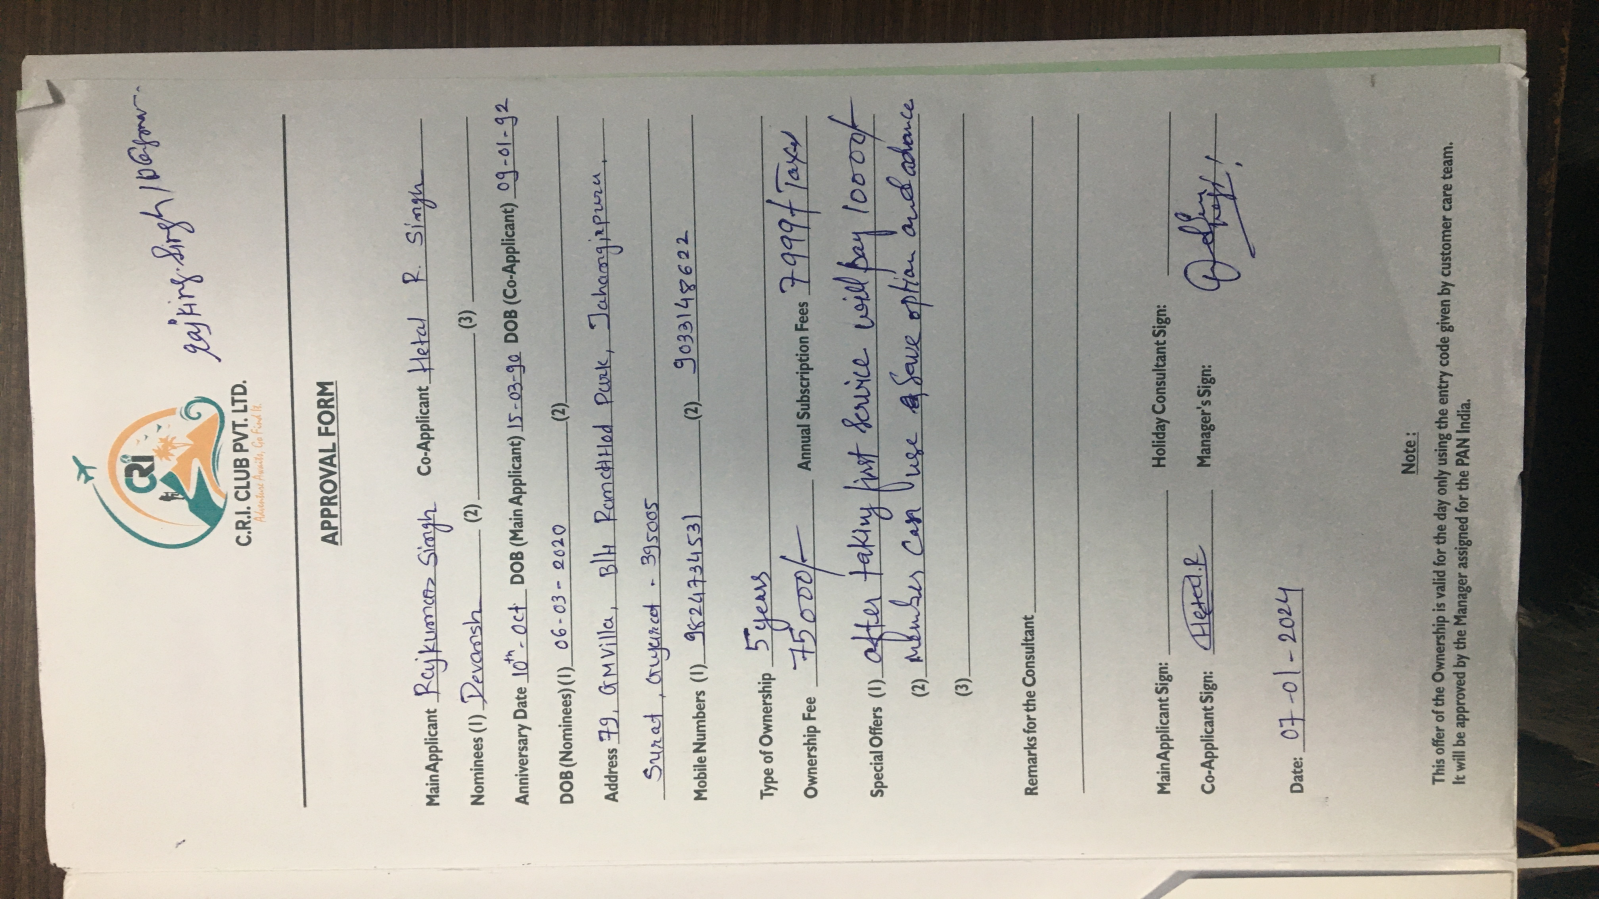 rajking.singh / 
CRI
C.R.I. CLUB PVT. LTD.
Adventure Awaits, Go Find It
APPROVAL FORM
Main Applicant Rajkumar Singh Co-Applicant Hetal R. Singh
Nominees (1) Devansh (2) (3)
Anniversary Date 10th-Oct DOB (Main Applicant) 15-03-90 DOB (Co-Applicant) 09-01-92
DOB (Nominees) (1) 06-03-2020 (2)
Address 79, GMVilla, B/H Ramchhod Park, Jahangirpura,
Surat, Gujarat - 395005
Mobile Numbers (1) 9824734531 (2) 9033148622
Type of Ownership 5 years
Ownership Fee 75000/- Annual Subscription Fees 7999/ Taxes
Special Offers (1) after taking first service will pay 10000/-
(2) Member can use save option and advance
(3)
Remarks for the Consultant
Main Applicant Sign: Holiday Consultant Sign:
Co-Applicant Sign: Hetal.R Manager's Sign:
Date: 07-01-2024
Note :
This offer of the Ownership is valid for the day only using the entry code given by customer care team.
It will be approved by the Manager assigned for the PAN India.